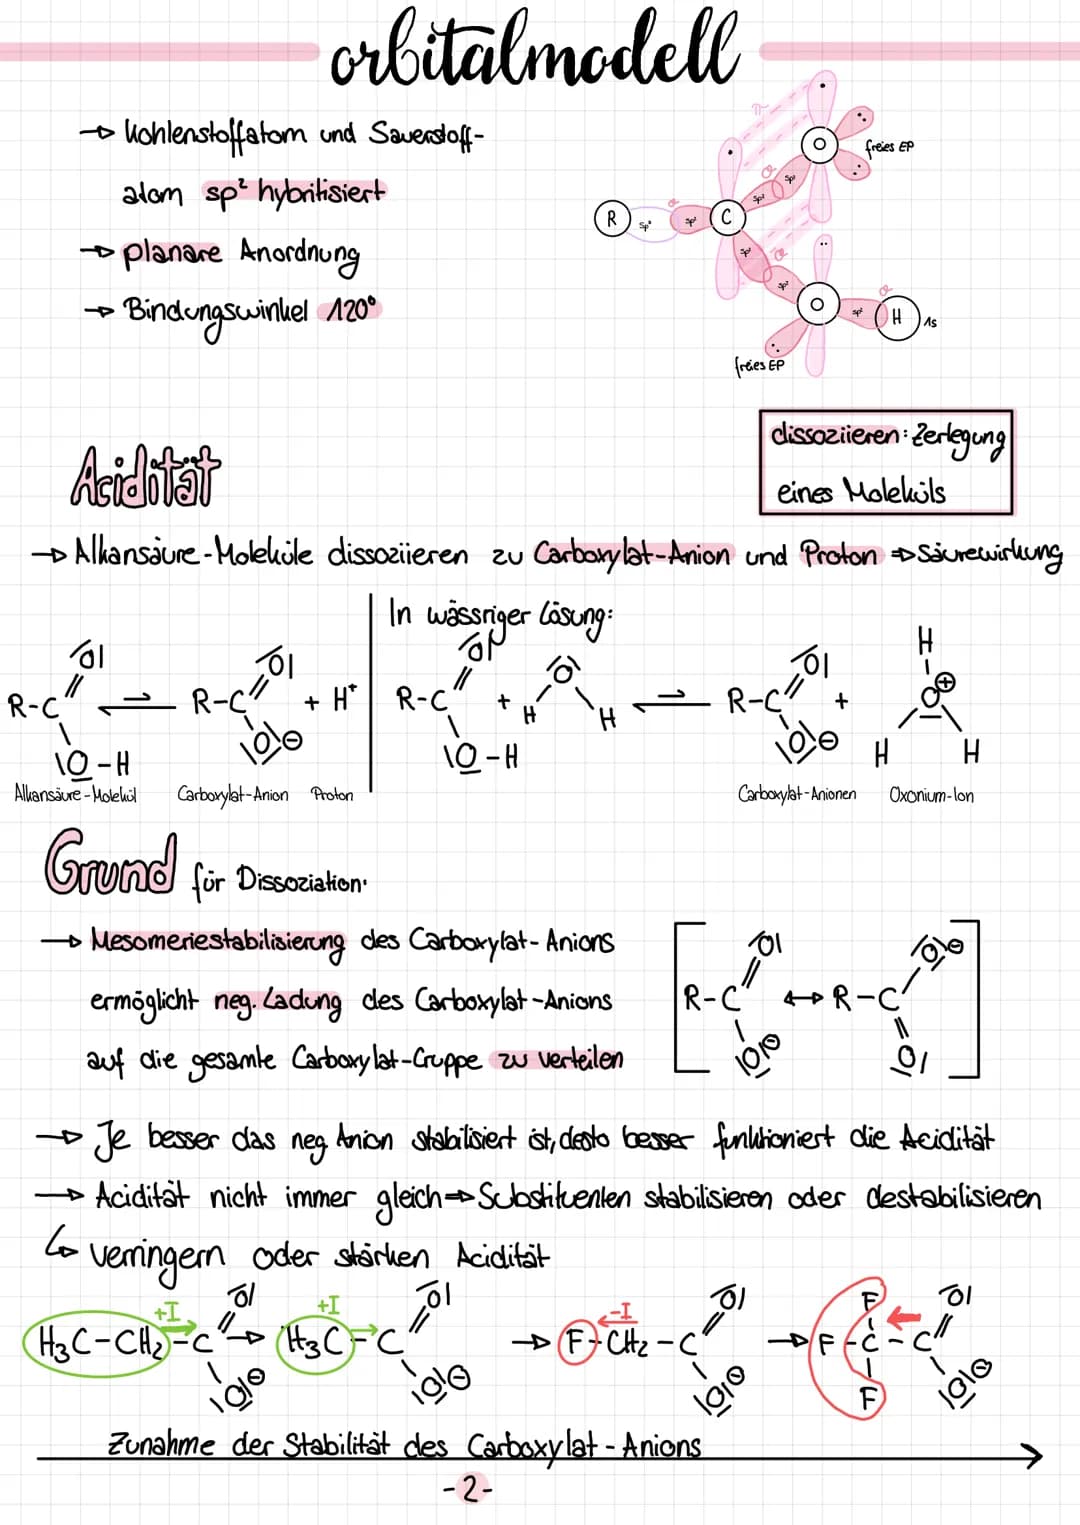 orbitalmodell
→ Kohlenstoffatom und Sauerstoff-
atom sp² hybritisiert
→ planare Anordnung
→ Bindungswinkel 120°
π
freies EP
R sp³ sp² C sp² sp² O
sp² sp² O sp² H 1s
freies EP
dissoziieren: Zerlegung
eines Moleküls
Acidität
→ Alkansäure-Moleküle dissoziieren zu Carboxylat-Anion und Proton ⇒ Säurewirkung
In wässriger Lösung:
R-C O O-H ⇌ R-C O O⊖ + H⁺
R-C O O-H + H O H ⇌ R-C O O⊖ + H O⊕ H H
Alkansäure-Molekül Carboxylat-Anion Proton
Carboxylat-Anionen Oxonium-Ion
Grund für Dissoziation:
→ Mesomeriestabilisierung des Carboxylat-Anions
ermöglicht neg. Ladung des Carboxylat-Anions
auf die gesamte Carboxylat-Gruppe zu verteilen
[R-C O O⊖ ↔ R-C O⊖ O]
→ Je besser das neg Anion stabilisiert ist, desto besser funktioniert die Acidität
→ Acidität nicht immer gleich ⇒ Substituenten stabilisieren oder destabilisieren
↳ verringern oder stärken Acidität
+I +I -I
H₃C-CH₂-C O O⊖ → H₃C-C O O⊖ → F-CH₂-C O O⊖ → F F-C-C F O O⊖
Zunahme der Stabilität des Carboxylat-Anions
-2-